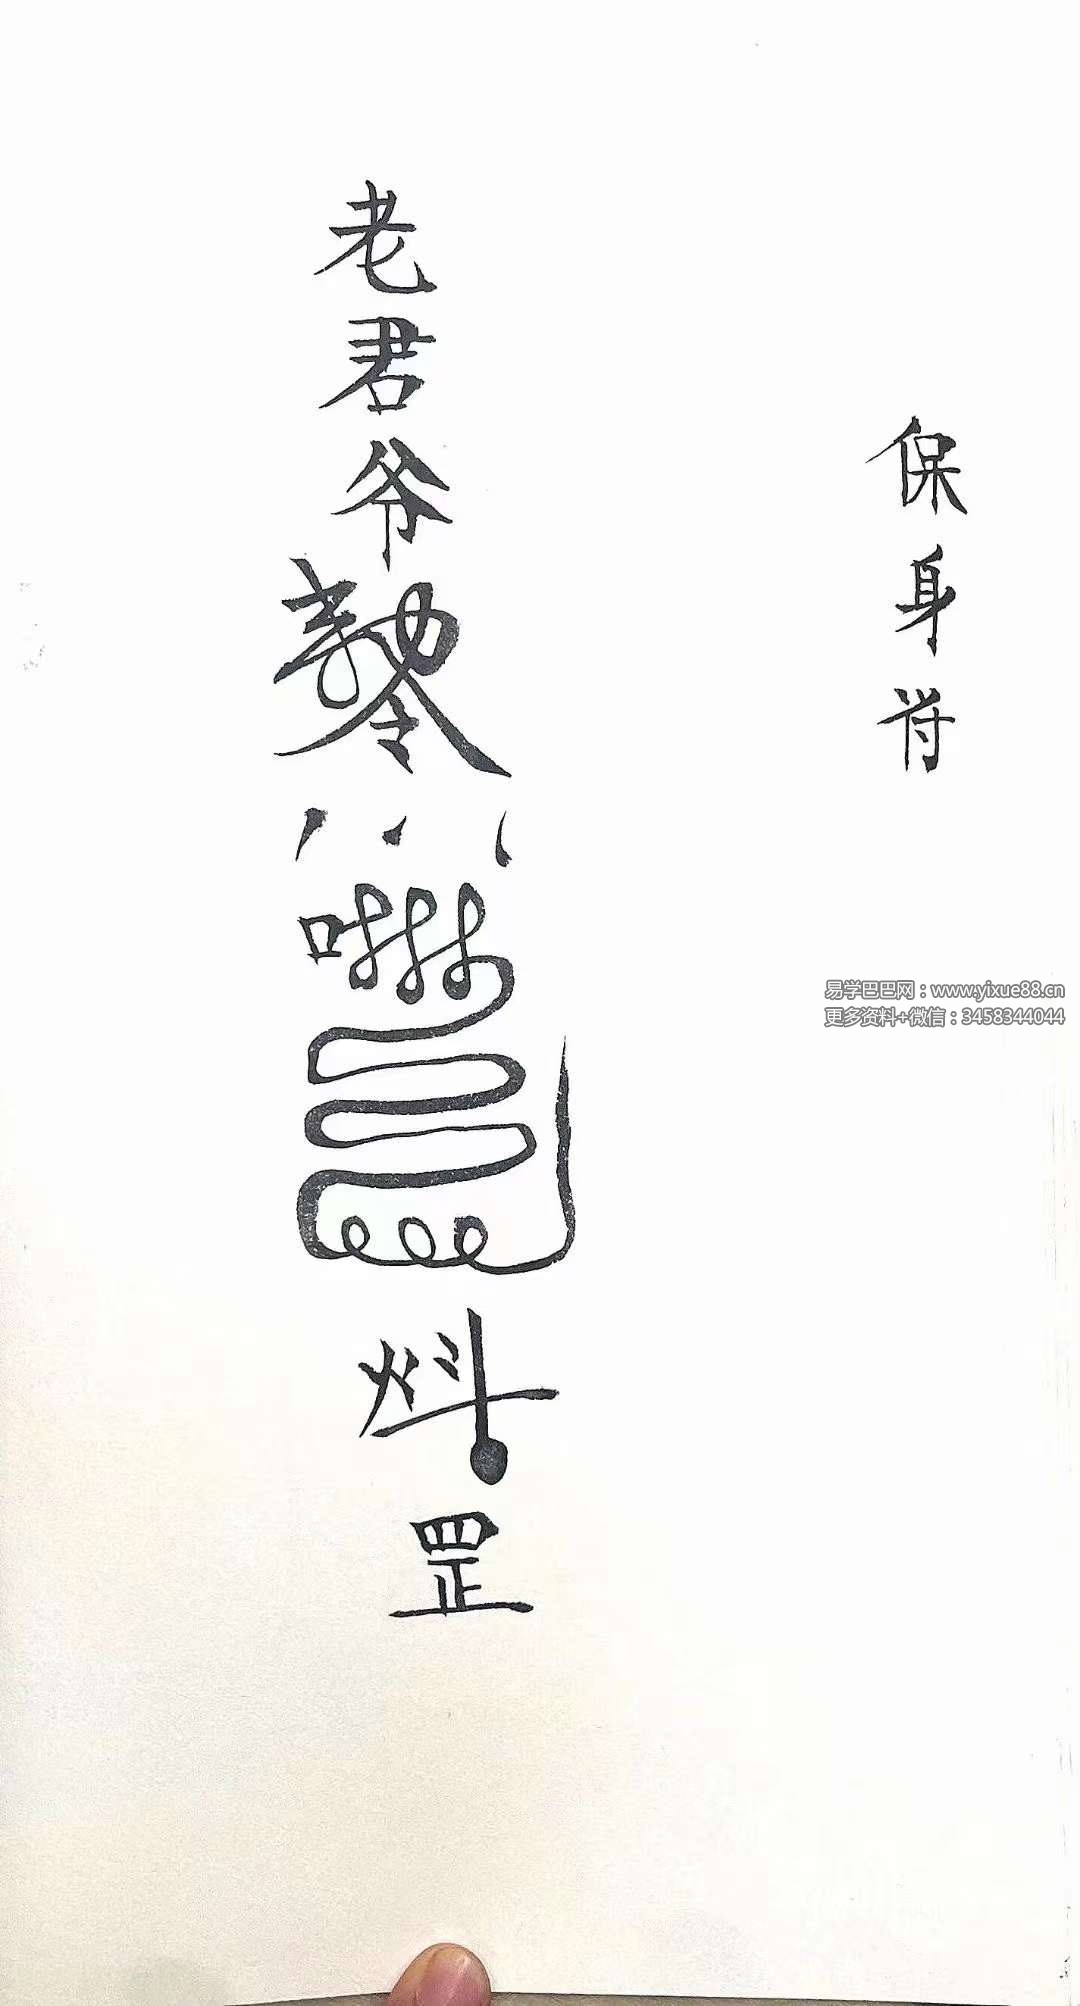 保身符
老君爷
罡
易学巴巴网：www.yixue88.cn
更多资料+微信：3458344044